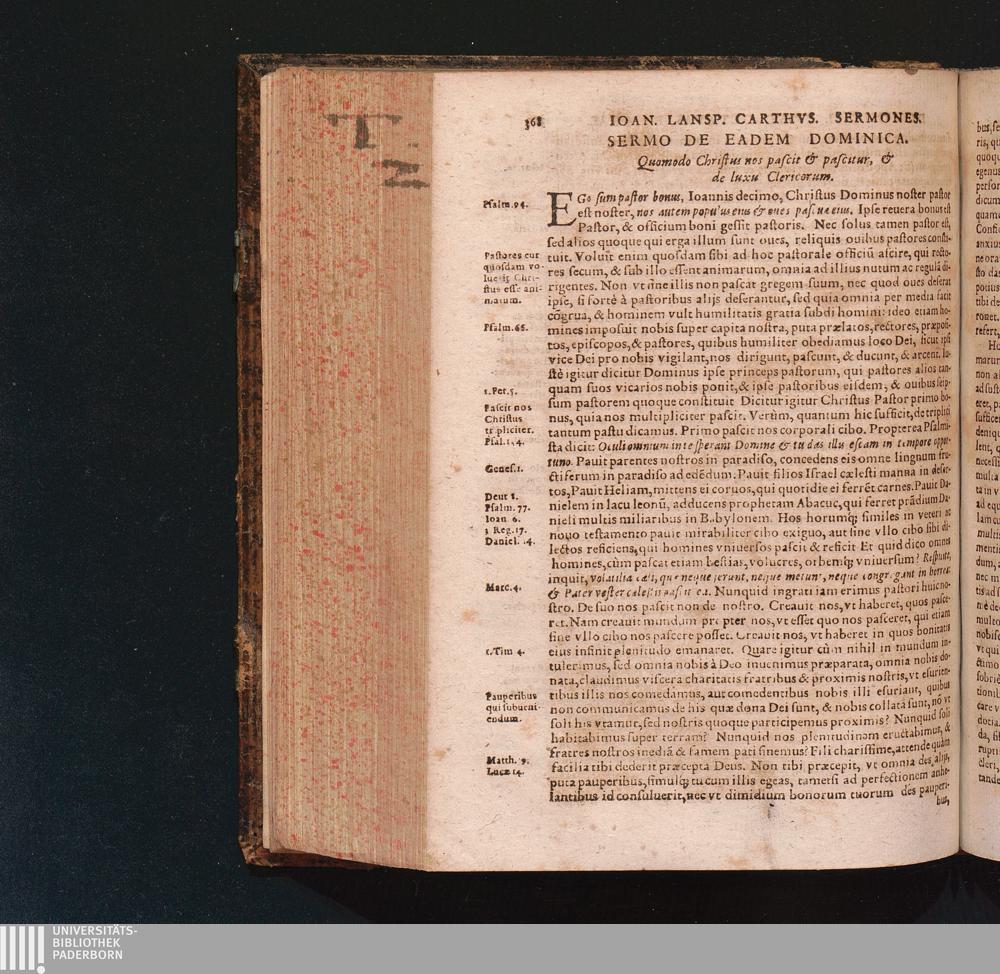 T.
N
368
IOAN. LANSP. CARTHVS. SERMONES.
SERMO DE EADEM DOMINICA.
Quomodo Christus nos pascit & pascitur, &
de luxu Clericorum.
Psalm. 94.
EGo sum pastor bonus, Ioannis decimo, Christus Dominus noster pastor
est noster, nos autem populus eius & oues pascuae eius. Ipse reuera bonus est
Pastor, & officium boni gessit pastoris. Nec solus tamen pastor est,
sed alios quoque qui erga illum sunt oues, reliquis ouibus pastores consti-
Pastores cur
quosdam vo-
lue it Chri-
stus esse ani-
marum.
tuit. Voluit enim quosdam sibi ad hoc pastorale officiũ ascire, qui recto-
res secum, & sub illo essent animarum, omnia ad illius nutum ac regulã di-
rigentes. Non vt sine illis non pascat gregem suum, nec quod oues deserat
ipse, si fortè à pastoribus alijs deserantur, sed quia omnia per media facit
cõgrua, & hominem vult humilitatis gratia subdi homini: ideo etiam ho-
Psalm. 65.
mines imposuit nobis super capita nostra, puta prælatos, rectores, præposi-
tos, episcopos, & pastores, quibus humiliter obediamus loco Dei, sicut ipsi
vice Dei pro nobis vigilant, nos dirigunt, pascunt, & ducunt, & arcent. Iu-
stè igitur dicitur Dominus ipse princeps pastorum, qui pastores alios tan-
1. Pet. 5.
quam suos vicarios nobis ponit, & ipse pastoribus eisdem, & ouibus seip-
sum pastorem quoque constituit Dicitur igitur Christus Pastor primo bo-
Pascit nos
Christus
tripliciter.
nus, quia nos multipliciter pascit. Verùm, quantum hic sufficit, de triplici
tantum pastu dicamus. Primo pascit nos corporali cibo. Propterea Psalmi-
Psal. 144.
sta dicit: Oculi omnium in te sperant Domine & tu das illis escam in tempore oppor-
tuno. Pauit parentes nostros in paradiso, concedens eis omne lingnum fru-
Genes. 1.
ctiferum in paradiso ad edẽdum. Pauit filios Israel cælesti manna in deser-
Deut 8.
Psalm. 77.
Ioan 6.
3 Reg. 17.
Daniel. 14.
tos, Pauit Heliam, mittens ei coruos, qui quotidie ei ferrẽt carnes. Pauit Da-
nielem in lacu leonũ, adducens prophetam Abacuc, qui ferret prãdium Da-
nieli multis miliaribus in Babylonem. Hos horumq; similes in veteri ac
nouo testamento pauit mirabiliter cibo exiguo, aut sine vllo cibo sibi di-
lectos reficiens, qui homines vniuersos pascit & reficit Et quid dico omnes
homines, cùm pascat etiam bestias, volucres, orbemq; vniuersum? Respicite,
inquit, volatilia cæli, quæ neque serunt, neque metunt, neque congregant in horrea:
Matt. 4.
& Pater vester cælestis pascit ea. Nunquid ingrati iam erimus pastori huic no-
stro. De suo nos pascit non de nostro. Creauit nos, vt haberet, quos pasce-
ret. Nam creauit mundum propter nos, vt esset quo nos pasceret, qui etiam
sine vllo cibo nos pascere posset. Creauit nos, vt haberet in quos bonitatis
1. Tim 4.
eius infinit plenitudo emanaret. Quare igitur cùm nihil in mundum in-
tulerimus, sed omnia nobis à Deo inuenimus præparata, omnia nobis do-
nata, claudimus viscera charitatis fratribus & proximis nostris, vt esurien-
Pauperibus
qui subueni-
endum.
tibus illis nos comedamus, aut comedentibus nobis illi esuriant, quibus
non communicamus de his quæ dona Dei sunt, & nobis collata sunt, nõ vt
soli his vtamur, sed nostris quoque participemus proximis? Nunquid soli
habitabimus super terram? Nunquid nos plenitudinem eructabimus, &
fratres nostros inediâ & famem pati sinemus? Fili charissime, attende quàm
Matth. 19.
Lucæ 14.
facilia tibi dederit præcepta Deus. Non tibi præcepit, vt omnia des alijs,
puta pauperibus, simulq; tu cum illis egeas, tametsi ad perfectionem anhe-
lantibus id consuluerit, nec vt dimidium bonorum tuorum des pauperi-
bus,
UNIVERSITÄTS-
BIBLIOTHEK
PADERBORN